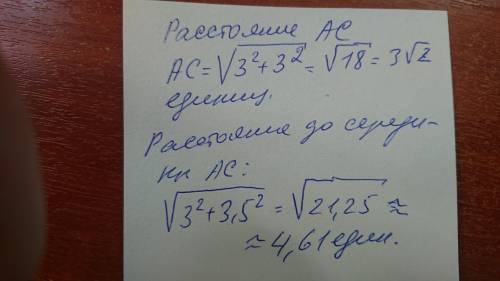 Расстояние AC
AC=√3²+3² = √18 = 3√2
единиц.
Расстояние до середи-
ны AC:
√3²+3,5² = √21,25 ≈
≈ 4,61 един.